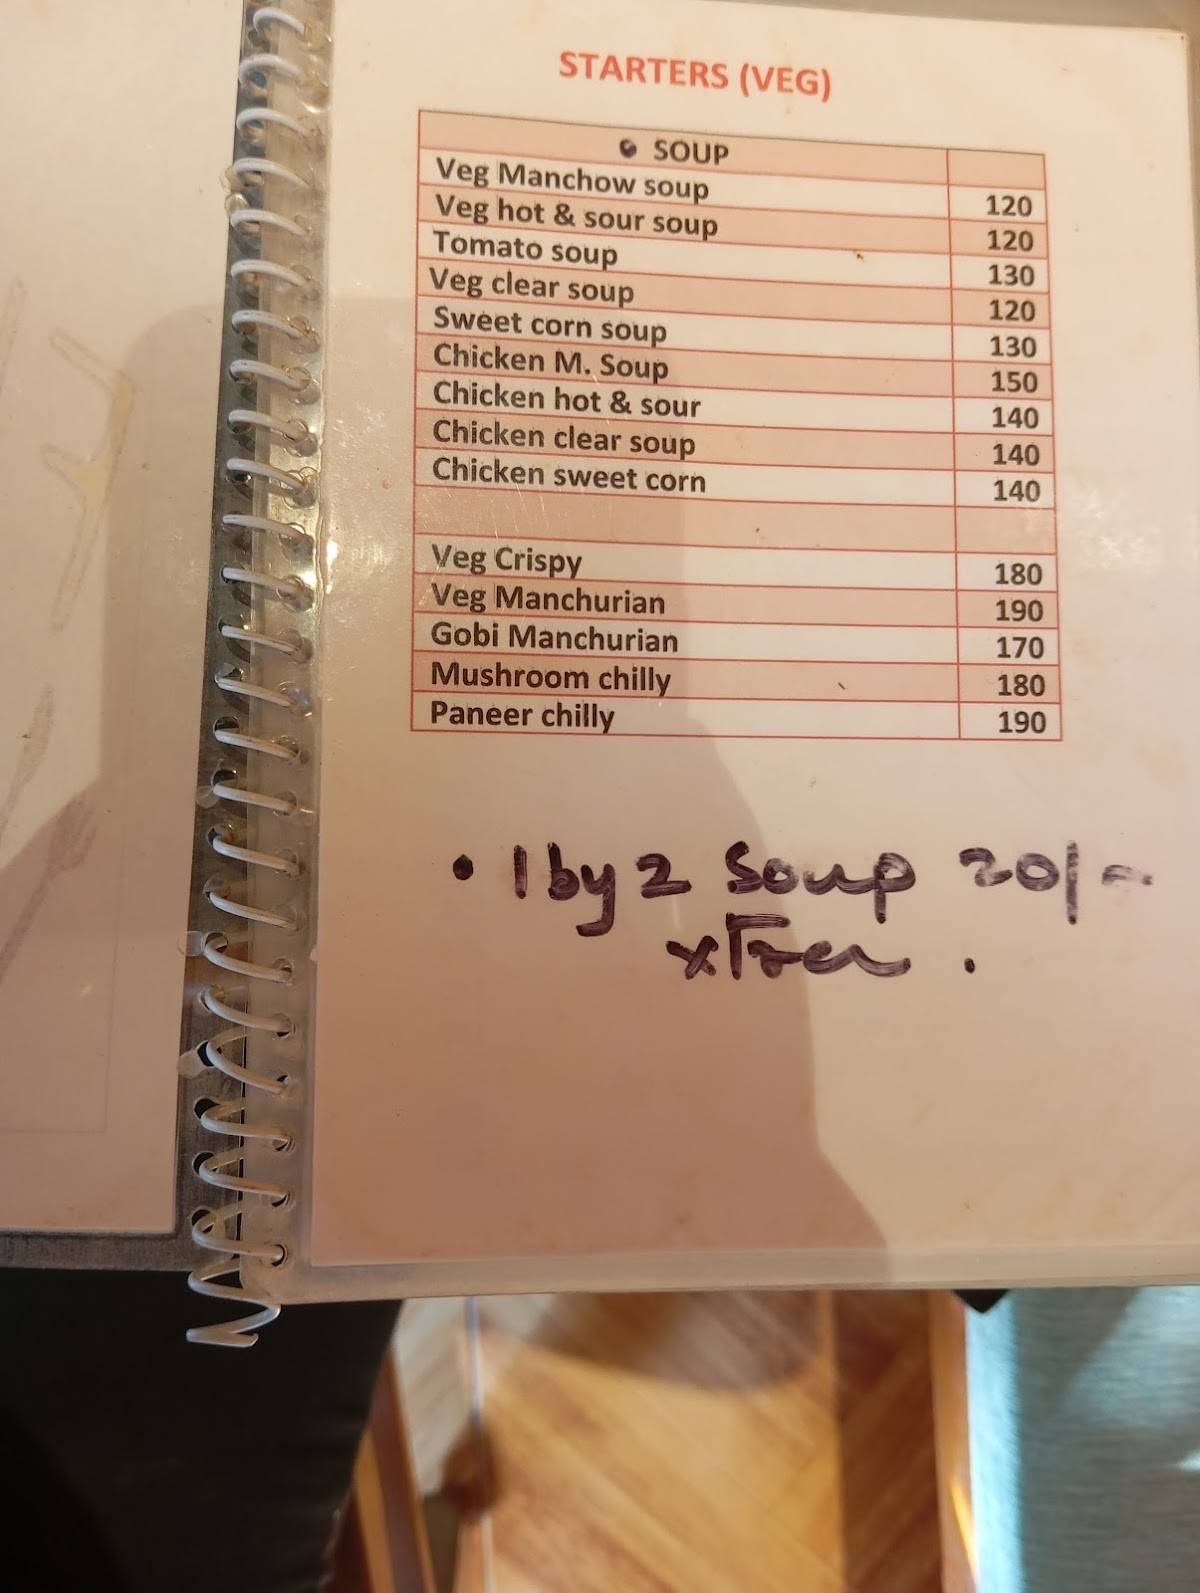 STARTERS (VEG)
SOUP
Veg Manchow soup 120
Veg hot & sour soup 120
Tomato soup 130
Veg clear soup 120
Sweet corn soup 130
Chicken M. Soup 150
Chicken hot & sour 140
Chicken clear soup 140
Chicken sweet corn 140
Veg Crispy 180
Veg Manchurian 190
Gobi Manchurian 170
Mushroom chilly 180
Paneer chilly 190
• 1 by 2 Soup 20/-
xTra .